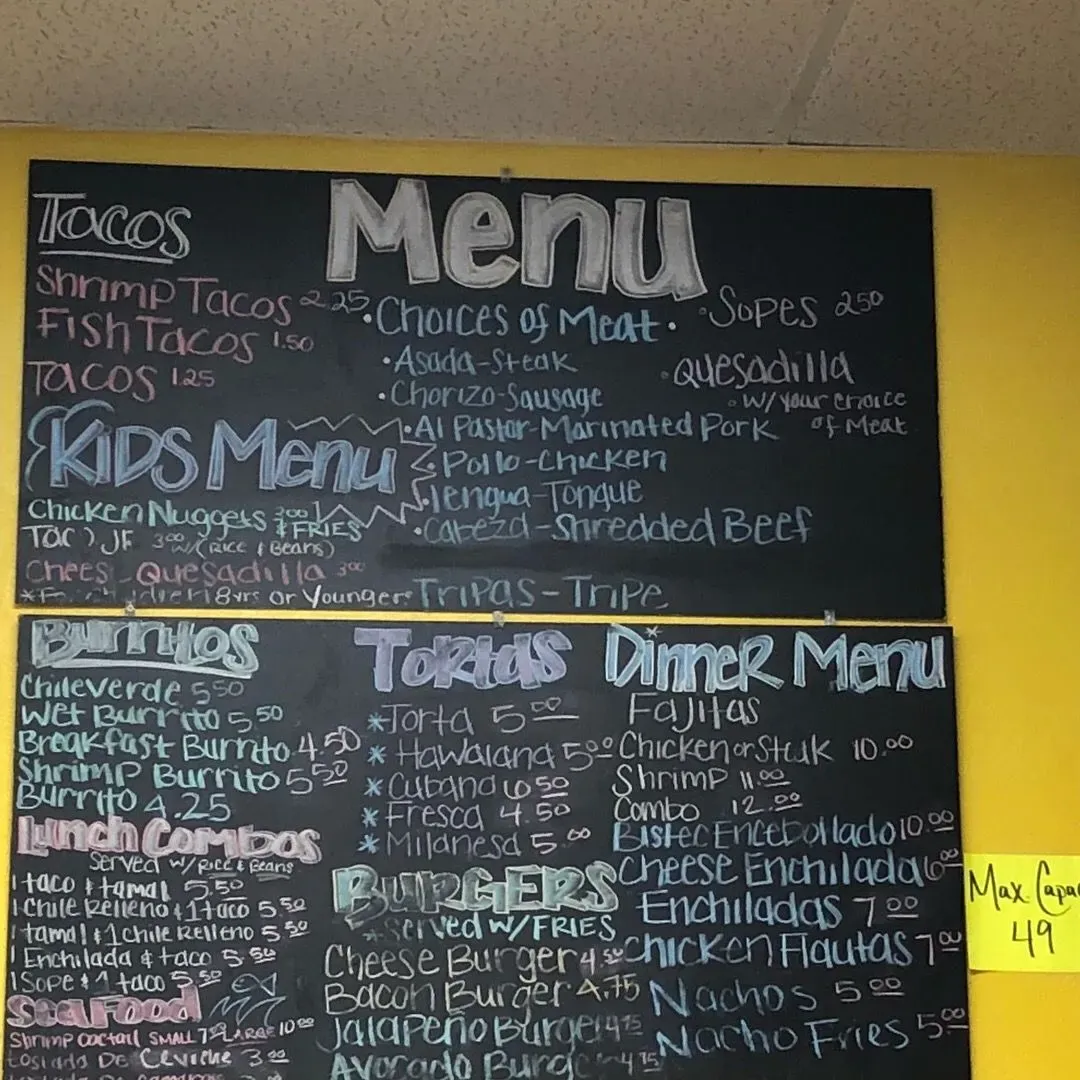 Menu
Tacos
Shrimp Tacos 2.25
Fish Tacos 1.50
Tacos 1.25
KIDS Menu
Chicken Nuggets 3.00 & FRIES
3.00 w/(Rice & Beans)
Quesadilla 3.00
8yrs or Younger
•Choices of Meat•
•Asada-Steak
•Chorizo-Sausage
•Al Pastor-Marinated Pork
•Pollo-Chicken
•lengua-Tongue
•Cabeza-Shredded Beef
•Tripas-Tripe
•Sopes 2.50
•Quesadilla
•w/your choice
of Meat
Burritos
Chile Verde 5.50
Wet Burrito 5.50
Breakfast Burrito 4.50
Shrimp Burrito 5.50
Burrito 4.25
Lunch Combos
Served w/Rice & Beans
1 taco & tamal 5.50
1 Chile Relleno & 1 taco 5.50
1 tamal & 1 Chile Relleno 5.50
1 Enchilada & taco 5.50
1 Sope & 1 taco 5.50
Seafood
Shrimp Coctail SMALL 7.00 LARGE 10.00
De Ceviche 3.00
Tortas
*Torta 5.00
*Hawaiana 5.00
*Cubana 6.50
*Fresca 4.50
*Milanesa 5.00
BURGERS
*served w/FRIES
Cheese Burger 4.50
Bacon Burger 4.75
Jalapeño Burger 4.75
Avocado 4.75
Dinner Menu
Fajitas
Chicken or Steak 10.00
Shrimp 11.00
Combo 12.00
Bistec Encebollado 10.00
Cheese Enchilada 6.00
Enchiladas 7.00
Chicken Flautas 7.00
Nachos 5.00
Nacho Fries 5.00
Max. Capa
49